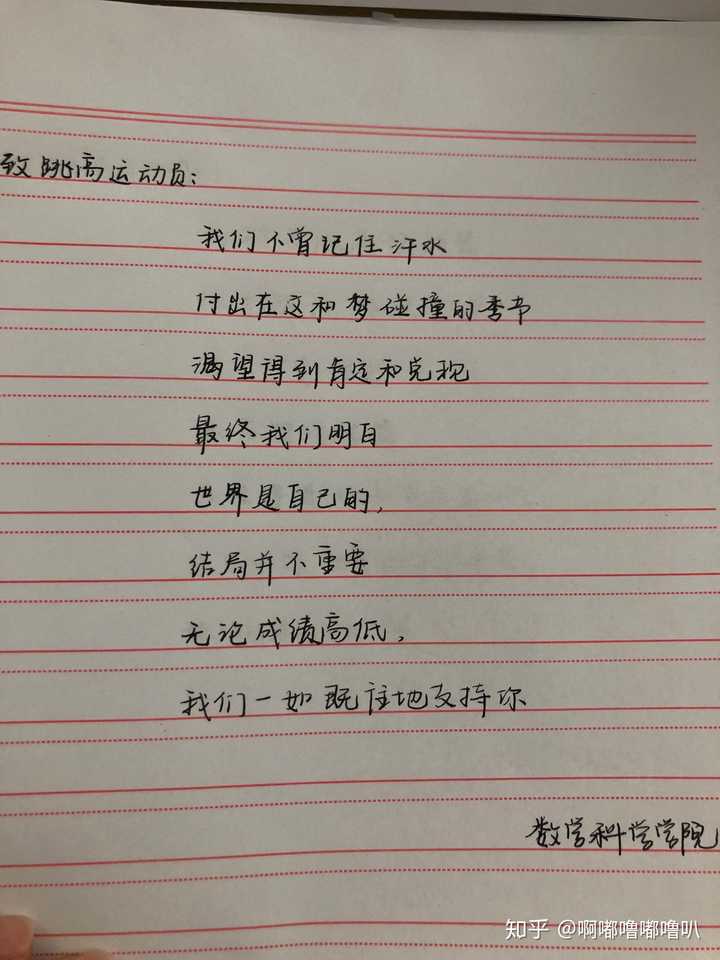 致跳高运动员：
我们不曾记住汗水
付出在这和梦碰撞的季节
渴望得到肯定和兑现
最终我们明白
世界是自己的，
结局并不重要
无论成绩高低，
我们一如既往地支持你
数学科学学院
知乎 @啊嘟噜嘟噜叭